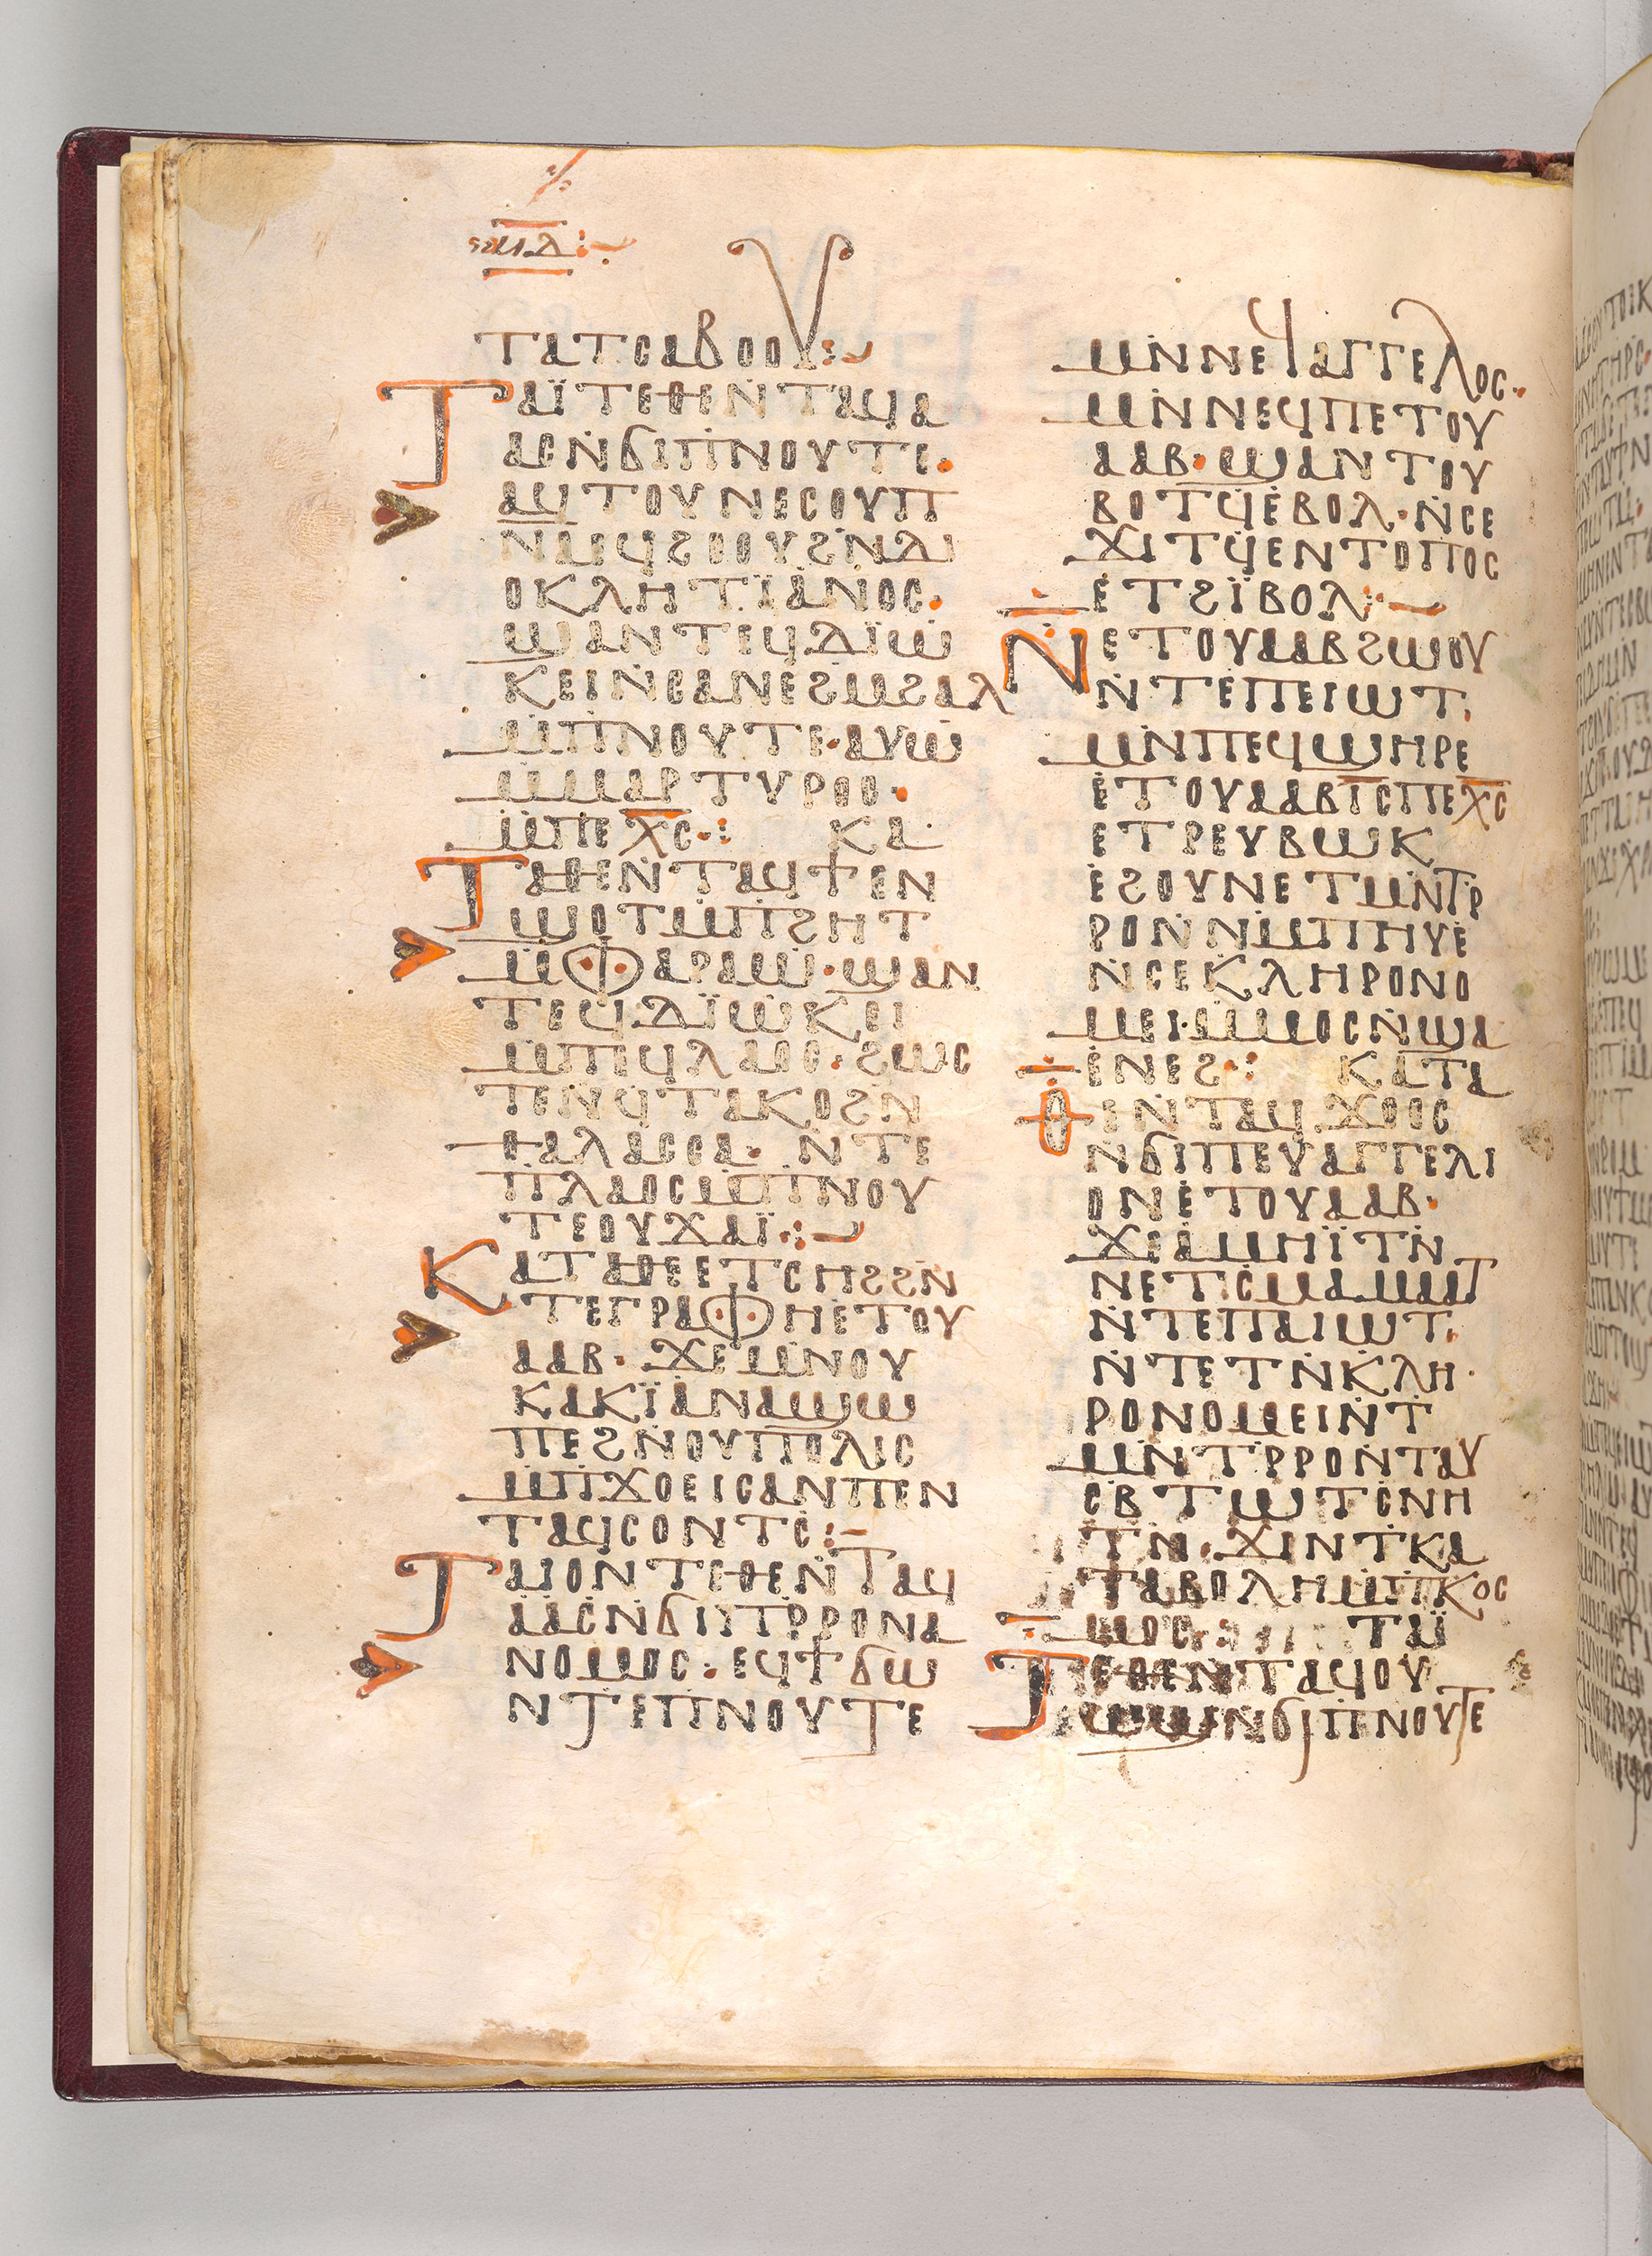 ⲧⲁⲧⲥⲁⲃⲟⲟⲩ:
ⲧⲁⲓ̈ⲧⲉⲑⲉⲛ̇ⲧⲁϥⲁ
ⲁⲥⲛ̇ϭⲓⲡⲛⲟⲩⲧⲉ.
ⲁϥⲧⲟⲩⲛⲉⲥⲟⲩⲡ̅
ⲛ̅ⲁⲉⲓϥϩⲟⲟⲩϩⲛⲇⲓ
ⲟⲕⲗⲏⲧⲓ̈ⲁⲛⲟⲥ.
ϣⲁⲛⲧⲉϥⲇⲓ̈ⲱ
ⲕⲉⲓⲛ̇ⲥⲁⲛⲉϩⲙϩⲁⲗ
ⲙ̇ⲡⲛⲟⲩⲧⲉ·ⲁⲩⲱ
ⲙ̇ⲙⲁⲣⲧⲩⲣⲟⲥ·
ⲙ̇ⲡⲉⲭ̅ⲥ̅·: ⲕⲁ
ⲧⲁⲑⲉⲛ̇ⲧⲁϥϯⲉⲛ
ϣⲟⲧⲙ̇ⲡϩⲏⲧ
ⲙ̇ⲫⲁⲣⲁⲱ·ϣⲁⲛ
ⲧⲉϥⲇⲓ̈ⲱⲕⲉⲓ
ⲙ̇ⲡⲉϥⲗⲁⲟⲥ·ϩⲱⲥ
ⲧⲉⲛ̇ϥⲧⲁⲕⲟϩⲛ
ⲑⲁⲗⲁⲥⲥⲁ· ⲛ̇ⲧⲉ
ⲡⲗⲁⲟⲥⲙ̇ⲡⲛⲟⲩ
ⲧⲉⲟⲩϫⲁⲓ̈·:
ⲕⲁⲧⲁⲑⲉⲉⲧⲥⲏϩϩⲛ
ⲧⲉⲅⲣⲁⲫⲏⲉⲧⲟⲩ
ⲁⲁⲃ· ϫⲉⲙ̇ⲛⲟⲩ
ⲕⲁⲕⲓ̈ⲁⲛⲁϣⲱ
ⲡⲉϩⲛⲟⲩⲡⲟⲗⲓⲥ
ⲙ̇ⲡϫⲟⲉⲓⲥⲁⲛⲡⲉⲛ
ⲧⲁϥⲥⲟⲛⲧⲥ̇:
ⲧⲁⲓⲟⲛⲧⲉⲑⲉⲛ̇ⲧⲁϥ
ⲁⲁⲥⲛ̇ϭⲓⲡⲣ̇ⲣⲟⲛⲁ
ⲛⲟⲙⲟⲥ·ⲉϥϯϭⲱ
ⲛⲧⲉⲡⲛⲟⲩⲧⲉ
ⲙⲛ̇ⲛⲉϥⲁⲅⲅⲉⲗⲟⲥ·
ⲙⲛ̇ⲛⲉϥⲡⲉⲧⲟⲩ
ⲁⲁⲃ·ϣⲁⲛⲧⲟⲩ
ⲃⲟⲧϥⲉ̇ⲃⲟⲗ·ⲛ̇ⲥⲉ
ϫⲓⲧϥⲉⲛⲧⲟⲡⲟⲥ
ⲉⲧϩⲓ̈ⲃⲟⲗ:
ⲛⲉⲧⲟⲩⲁⲁⲃϩⲱⲟⲩ
ⲛ̇ⲧⲉⲡⲉⲓⲱⲧ.
ⲙⲛ̇ⲡⲉϥϣⲏⲣⲉ
ⲉⲧⲟⲩⲁⲁⲃⲓ̅ⲥ̅ⲡⲉⲭ̅ⲥ̅
ⲉⲧⲣⲉⲩⲃⲱⲕ
ⲉ̇ϩⲟⲩⲛⲉⲧⲙⲛ̇ⲧⲣ̇
ⲣⲟⲛ̇ⲛⲙⲡⲏⲩⲉ
ⲛ̇ⲥⲉⲕⲗⲏⲣⲟⲛⲟ
ⲙⲉⲓ·ⲙ̇ⲙⲟⲥⲛ̇ϣⲁ
ⲉⲛⲉϩ·: ⲕⲁⲧⲁ
ⲑⲉⲛ̇ⲧⲁϥϫⲟⲟⲥ
ⲛ̇ϭⲓⲡⲉⲩⲁⲅⲅⲉⲗⲓ
ⲟⲛⲉ̇ⲧⲟⲩⲁⲁⲃ·
ϫⲉⲁⲙⲏⲓ̈ⲧⲛ̇
ⲛⲉⲧⲥⲙⲁⲙⲁⲁⲧ
ⲛ̇ⲧⲉⲡⲁⲓⲱⲧ.
ⲛ̇ⲧⲉⲧⲛ̇ⲕⲗⲏ
ⲣⲟⲛⲟⲙⲉⲓⲛ̇ⲧ
ⲙⲛ̇ⲧⲣ̇ⲣⲟⲛⲧⲁⲩ
ⲥⲃⲧⲱⲧⲥ̇ⲛⲏ
ⲧⲛ·ϫⲓⲛⲧⲕⲁ
ⲧⲁⲃⲟⲗⲏⲙ̇ⲡⲕⲟⲥ
ⲙⲟⲥ: ⲧⲁⲓ̈
ⲧⲉⲑⲉⲛ̇ⲧⲁϥⲟⲩ
ⲱϣⲛ̇ϭⲓⲡⲛⲟⲩⲧⲉ